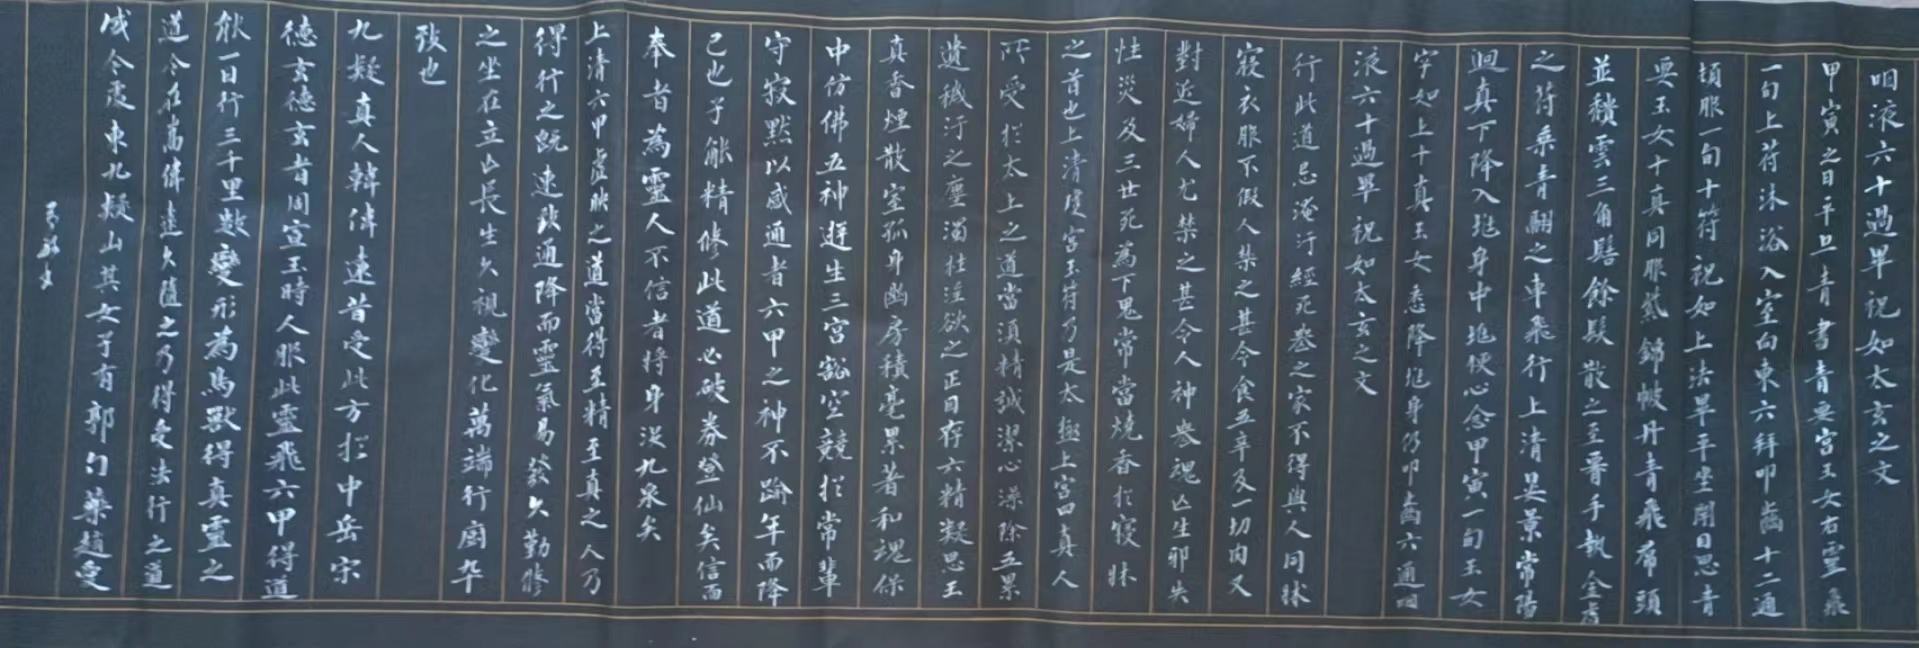 咽液六十過畢祝如太玄之文
甲寅之日平旦青書青要宮玉女右靈飛
一旬上符沐浴入室向東六拜叩齒十二通
頓服一旬十符祝如上法畢平坐閉目思青
要玉女十真同服紫錦帔丹青飛帬頭
並穨雲三角髻餘髮散之至晉手執金虎
之符乘青翮之車飛行上清晃景常陽
迴真下降入兆身中兆便心念甲寅一旬玉女
字如上十真玉女悉降兆身仍叩齒六通咽
液六十過畢祝如太玄之文
行此道忌淹汙經死喪之家不得與人同牀
寢衣服不假人禁之甚令食五辛及一切肉又
對近婦人尤禁之甚令人神喪魂亡生邪失
性災及三世死為下鬼常當燒香於寢牀
之首也上清瓊宮玉符乃是太極上宮四真人
所受於太上之道當湏精誠潔心澡除五累
遺穢汙之塵濁杜淫欲之正目存六精凝思玉
真香煙散室孤身幽房積毫累著和魂保
中仿佛五神遊生三宮豁空競於常輩
守寂默以感通者六甲之神不踰年而降
己也子能精修此道必破券登仙矣信而
奉者為靈人不信者將身没九泉矣
上清六甲虛映之道當得至精至真之人乃
得行之既速致通降而靈氣易發久勤修
之坐在立亡長生久視變化萬端行廚卒
致也
九疑真人韓偉遠昔受此方於中岳宋
德玄德玄者周宣王時人服此靈飛六甲得道
能一日行三千里數變形為鳥獸得真靈之
道今在嵩偉遠久隨之乃得受法行之道
成今處東九疑山其女子有郭勺藥趙受